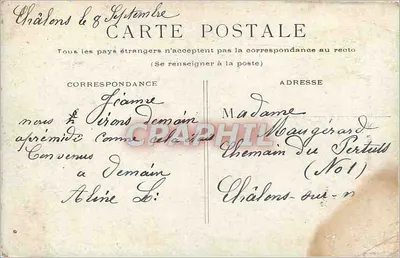 Châlons le 8 Septembre
CARTE POSTALE
Tous les pays étrangers n'acceptent pas la correspondance au recto
(Se renseigner à la poste)
CORRESPONDANCE
ADRESSE
Jéanne
nous irons demain
aprémidi comme
Convenus
a demain
Aline L:
Madame
Maugérard
Chemain du Pertuts
(No 1)
Châlons-sur-
CPAPHIL.COM